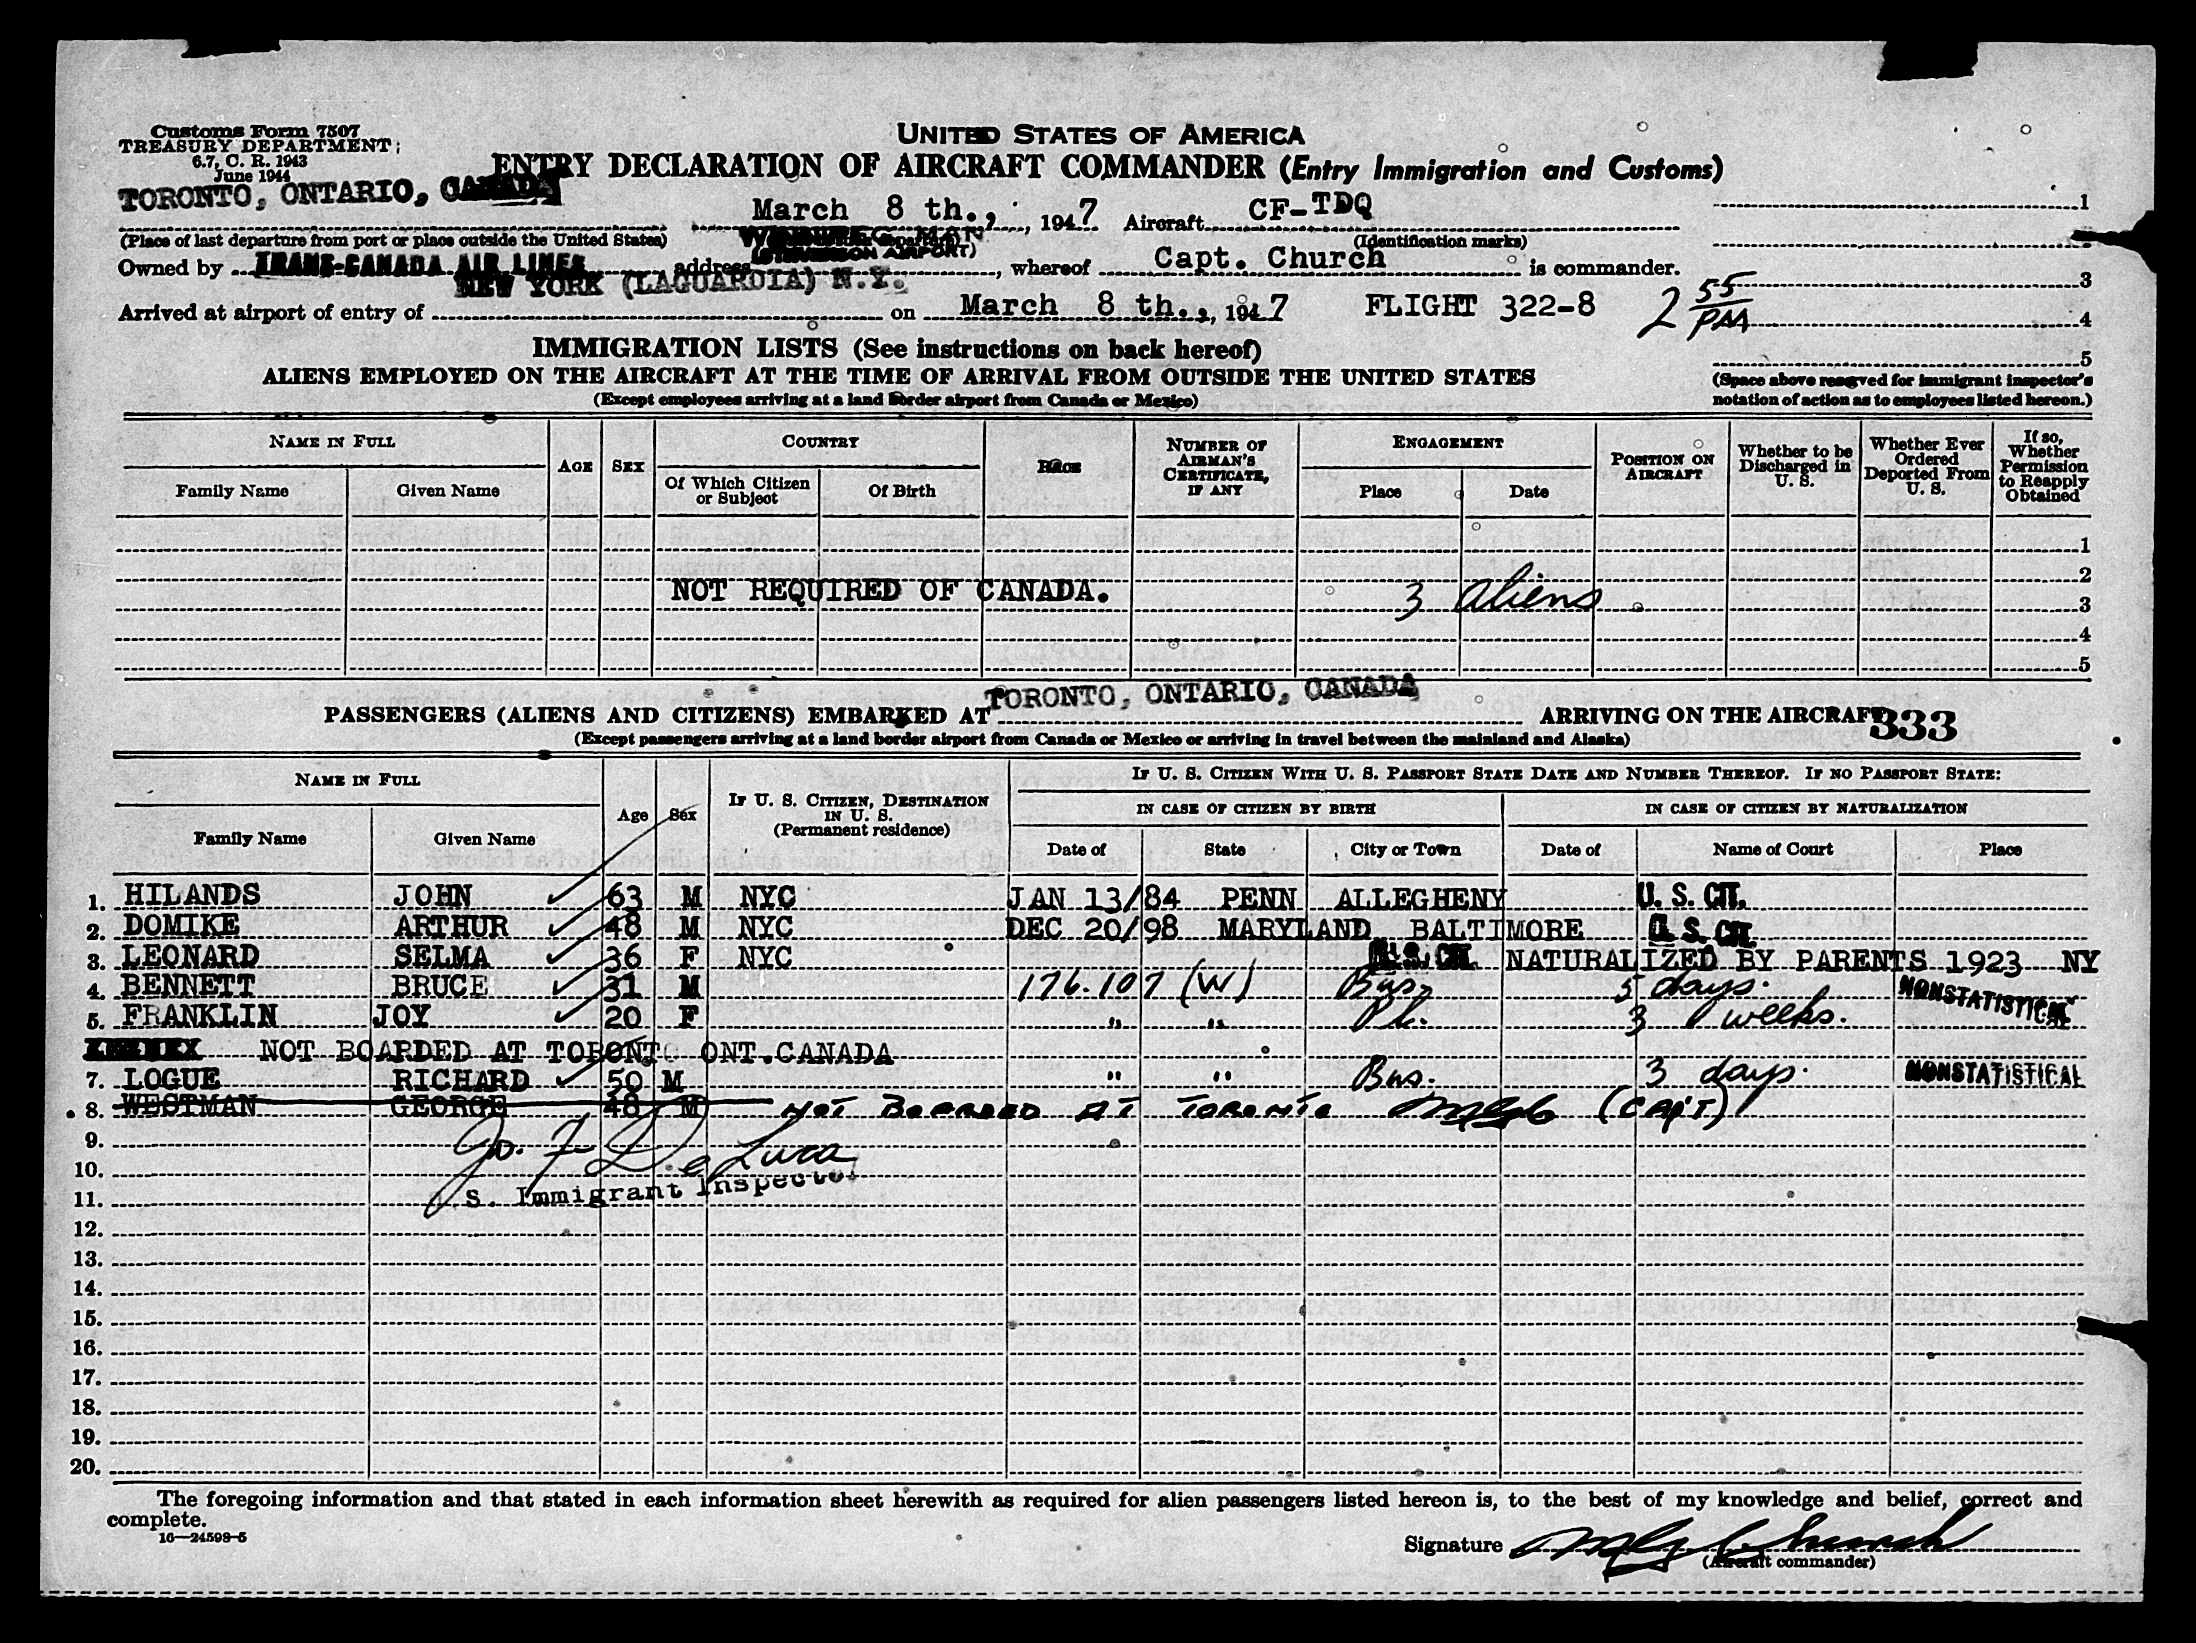 Customs Form 7507
TREASURY DEPARTMENT
6.7, C. R. 1943
June 1944
UNITED STATES OF AMERICA
ENTRY DECLARATION OF AIRCRAFT COMMANDER (Entry Immigration and Customs)
TORONTO, ONTARIO, CANADA
March 8 th., 1947 Aircraft CF-TDQ
1
(Place of last departure from port or place outside the United States)
(Identification marks)
WINNIPEG MAN
(STEVENSON AIRPORT)
Owned by TRANS-CANADA AIR LINES address , whereof Capt. Church is commander.
3
NEW YORK (LAGUARDIA) N.Y.
Arrived at airport of entry of on March 8 th., 1947 FLIGHT 322-8 2 55
4
IMMIGRATION LISTS (See instructions on back hereof)
5
ALIENS EMPLOYED ON THE AIRCRAFT AT THE TIME OF ARRIVAL FROM OUTSIDE THE UNITED STATES
(Except employees arriving at a land border airport from Canada or Mexico)
(Space above reserved for immigrant inspector's
notation of action as to employees listed hereon.)
NAME IN FULL
Family Name Given Name
AGE SEX
COUNTRY
Of Which Citizen or Subject Of Birth
RACE
NUMBER OF AIRMAN'S CERTIFICATE, IF ANY
ENGAGEMENT
Place Date
POSITION ON AIRCRAFT
Whether to be Discharged in U. S.
Whether Ever Ordered Deported From U. S.
If so, Whether Permission to Reapply Obtained
1
2
NOT REQUIRED OF CANADA. 3 aliens
3
4
5
TORONTO, ONTARIO, CANADA
PASSENGERS (ALIENS AND CITIZENS) EMBARKED AT ARRIVING ON THE AIRCRAFT 333
(Except passengers arriving at a land border airport from Canada or Mexico or arriving in travel between the mainland and Alaska)
NAME IN FULL
Family Name Given Name
Age Sex
IF U. S. CITIZEN, DESTINATION IN U. S. (Permanent residence)
IF U. S. CITIZEN WITH U. S. PASSPORT STATE DATE AND NUMBER THEREOF. IF NO PASSPORT STATE:
IN CASE OF CITIZEN BY BIRTH IN CASE OF CITIZEN BY NATURALIZATION
Date of State City or Town Date of Name of Court Place
1. HILANDS JOHN 63 M NYC JAN 13/84 PENN ALLEGHENY U. S. CIT.
2. DOMIKE ARTHUR 48 M NYC DEC 20/98 MARYLAND BALTIMORE U. S. CIT.
3. LEONARD SELMA 36 F NYC U. S. CIT. NATURALIZED BY PARENTS 1923 NY
4. BENNETT BRUCE 31 M 176.107 (W) Bus. 5 days. NONSTATISTICAL
5. FRANKLIN JOY 20 F " " Pl. 3 weeks.
NOT BOARDED AT TORONTO ONT.CANADA
7. LOGUE RICHARD 50 M " " Bus. 3 days. NONSTATISTICAL
8. WESTMAN GEORGE 48 M NOT BOARDED AT TORONTO (CAPT)
9.
Jo. F. De Luca
10.
11. S. Immigrant Inspector
12.
13.
14.
15.
16.
17.
18.
19.
20.
The foregoing information and that stated in each information sheet herewith as required for alien passengers listed hereon is, to the best of my knowledge and belief, correct and
complete.
16—24598-5
Signature Church
(Aircraft commander)